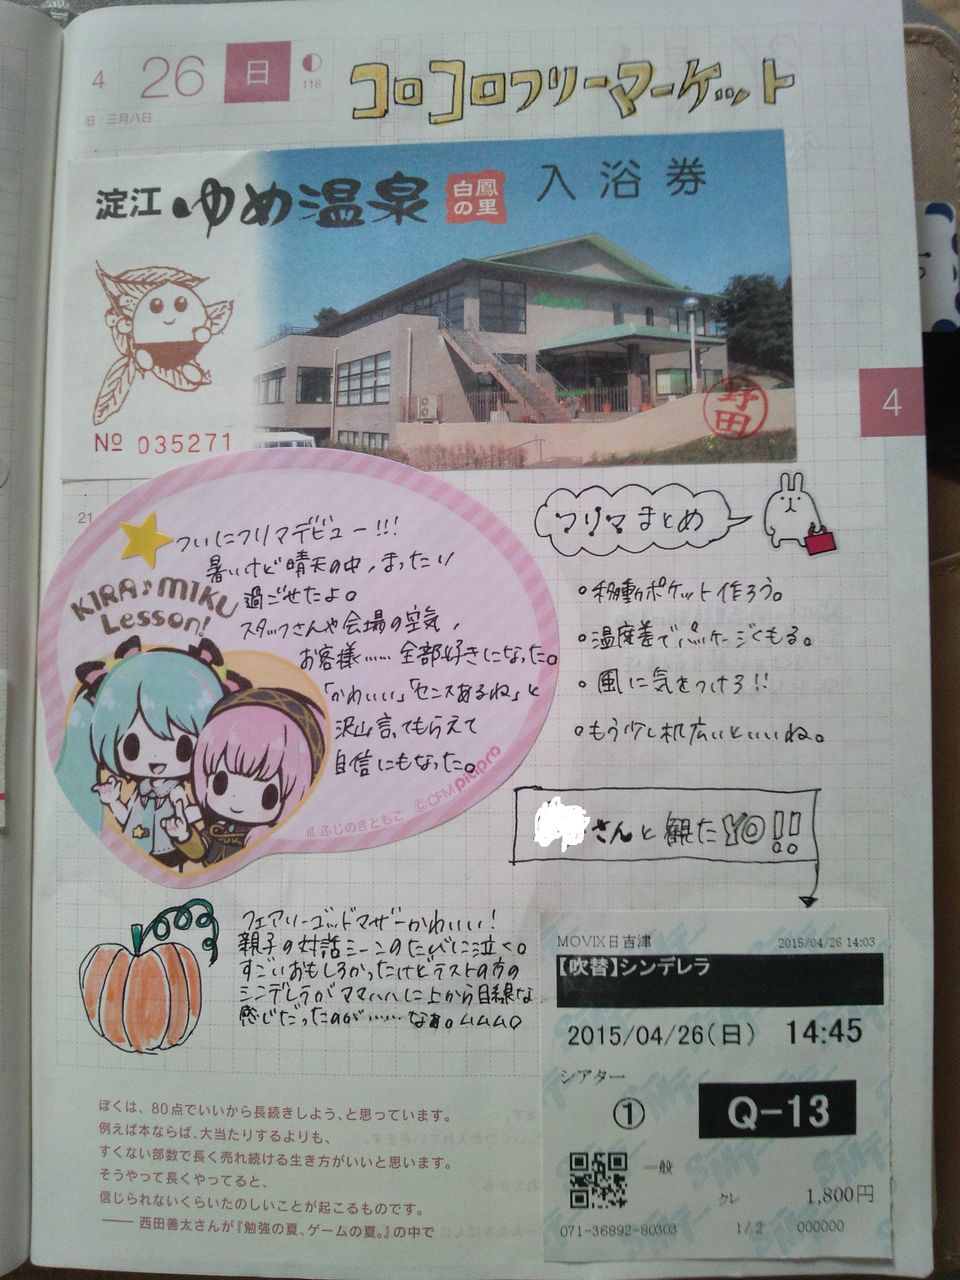 4 26 日 116
旧:三月八日
コロコロフリーマーケット
淀江 ゆめ温泉 白鳳の里 入浴券
野田
No 035271
4
21
ついにフリマデビュー!!!
暑いけど晴天の中、まったり
過ごせたよ。
スタッフさんや会場の空気、
お客様……全部好きになった。
「かわいい」「センスあるね」と
沢山言ってもらえて
自信にもなった。
KIRA♪MIKU
Lesson!
©CFM piapro
ill. ふじのきともこ
フリマまとめ
・移動ポケット作ろう。
・温度差でパッケージくもる。
・風に気をつけろ!!
・もう少し机広いといいね。
さんと観たYO!!
フェアリーゴッドマザーかわいい!
親子の対話シーンのたびに泣く。
すごいおもしろかったけどラストの方の
シンデレラがママハハに上から目線な
感じだったのが……なぁ。ムムム。
MOVIX日吉津 2015/04/26 14:03
【吹替】シンデレラ
2015/04/26(日) 14:45
シアター
① Q-13
一般
クレ 1,800円
071-36892-80303 1/2 000000
ぼくは、80点でいいから長続きしよう、と思っています。
例えば本ならば、大当たりするよりも、
すくない部数で長く売れ続ける生き方がいいと思います。
そうやって長くやってると、
信じられないくらいたのしいことが起こるものです。
―― 西田善太さんが『勉強の夏、ゲームの夏。』の中で